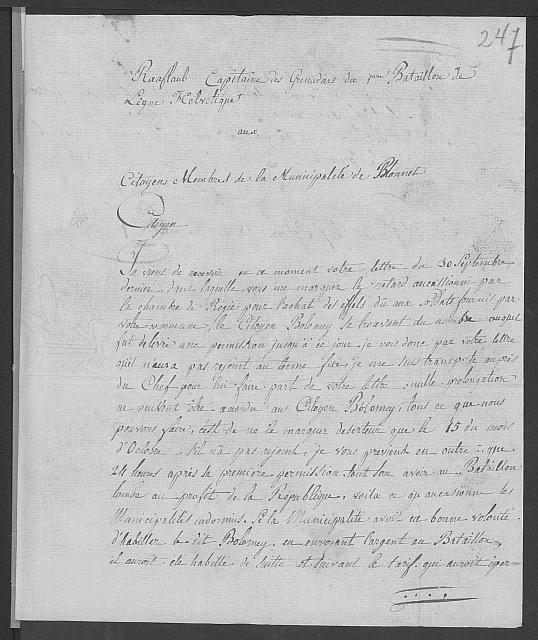 247
Raaflaub Capitaine des Grenadiers du 1er Bataillon de
Ligne Helvetique
aux
Citoyens Membres de la Municipalité de Blonnet
Citoyen
Je viens de recevoir en ce moment votre lettre du 30 Septembre
dernier, dans laquelle vous me marquer le retard aucasionné par
la chambre de Regie pour l'achat des effets dû aux soldats fournit par
votre commune, le Citoyen Bolomey se trouvant du nombre auquel
fut delivré une permission jusqu'à ce jour, je vois donc par votre lettre
qu'il n'aura pas rejoint au terme fixé, je me suis transporté auprès
du Chef pour lui faire part de votre lettre nulle prolongation
ne peuvent être accordé au Citoyen Bolomey, tous ce que nous
pouvons faire, c'est de ne le marquer deserteur que le 15 du mois
d'Octobre s'il n'a pas rejoint, je vous previent en outre, que
24 heures après la premiere permission tout son avoir au Bataillon
tombe au profit de la Republique, voila ce qu'aucasionne les
Municipalités indormis. Si la Municipalité avoit eu bonne volonté
d'habiller le dit Bolomey en envoyant l'argent au Bataillon,
il auroit été habillé de suitte et suivant le tarif qui auroit épar-